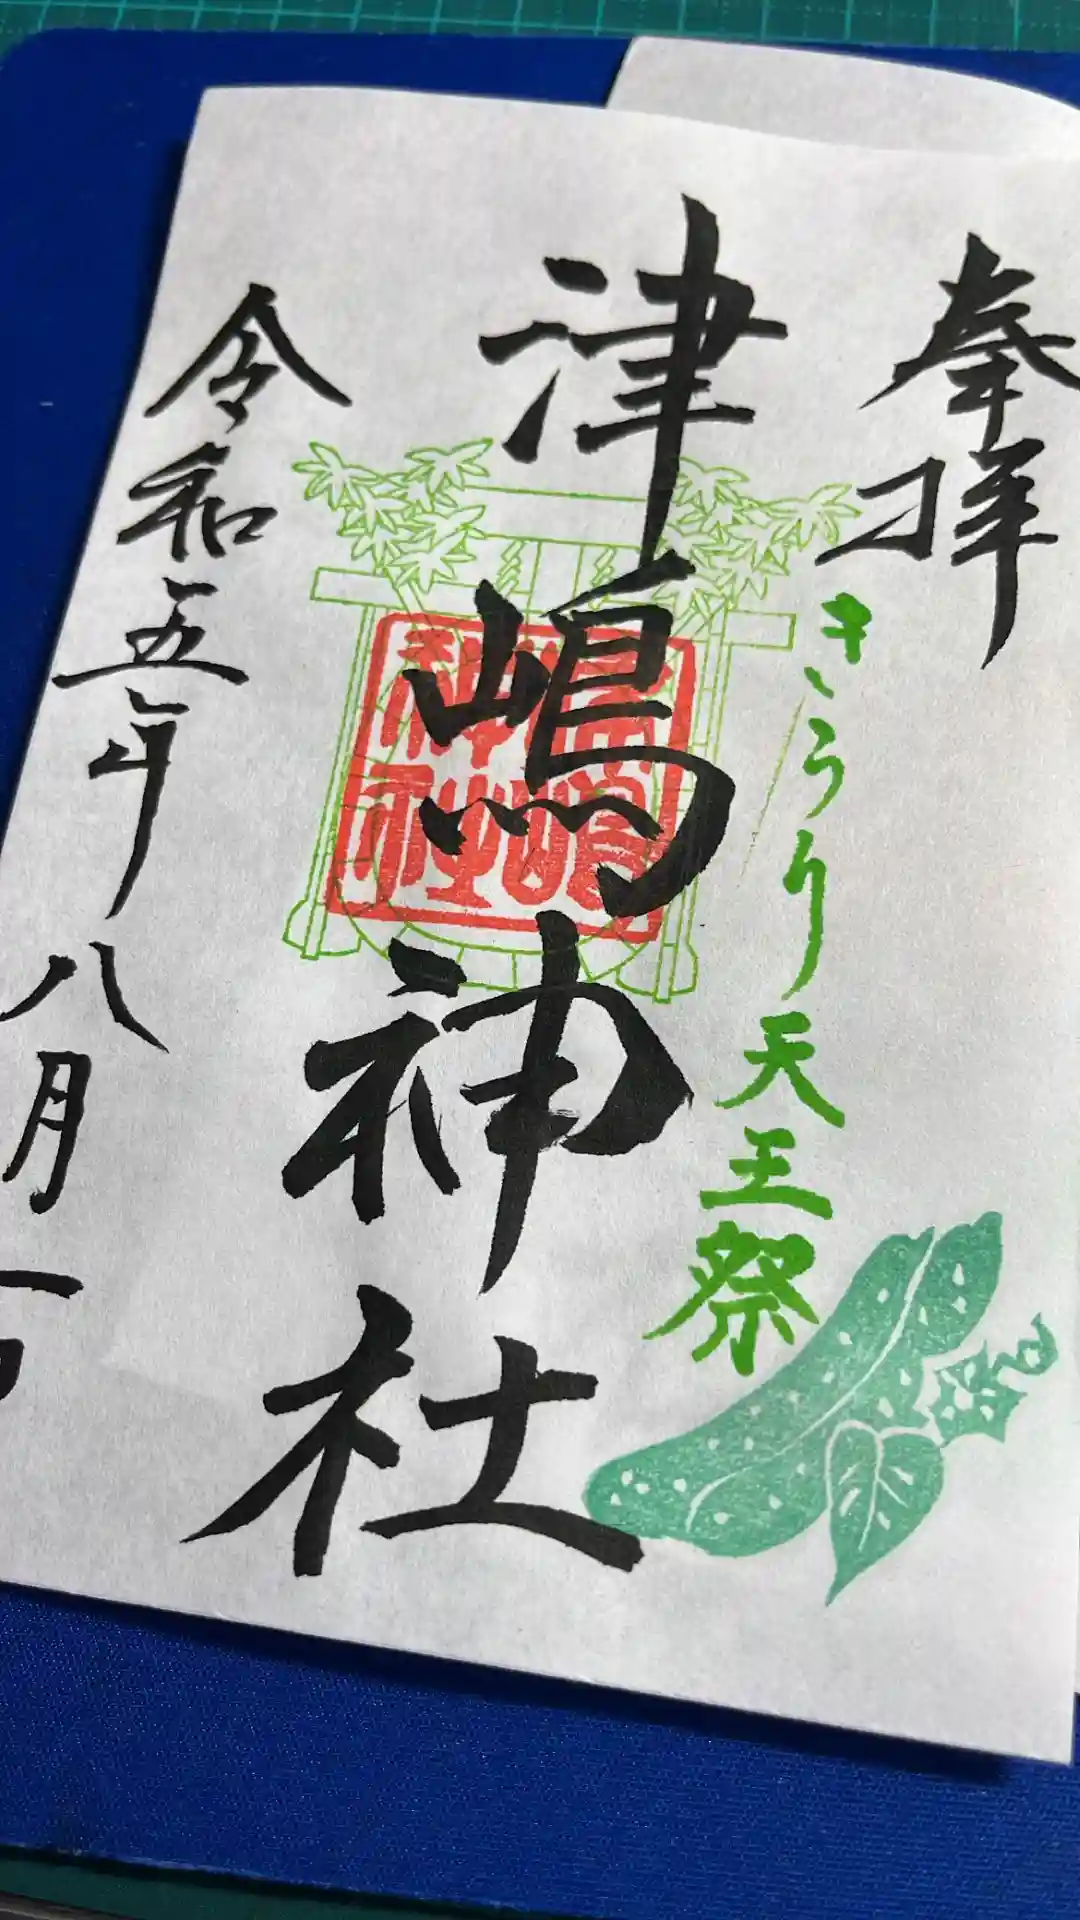 奉拝
きうり天王祭
津嶋神社
津嶋神社
令和五年八月一